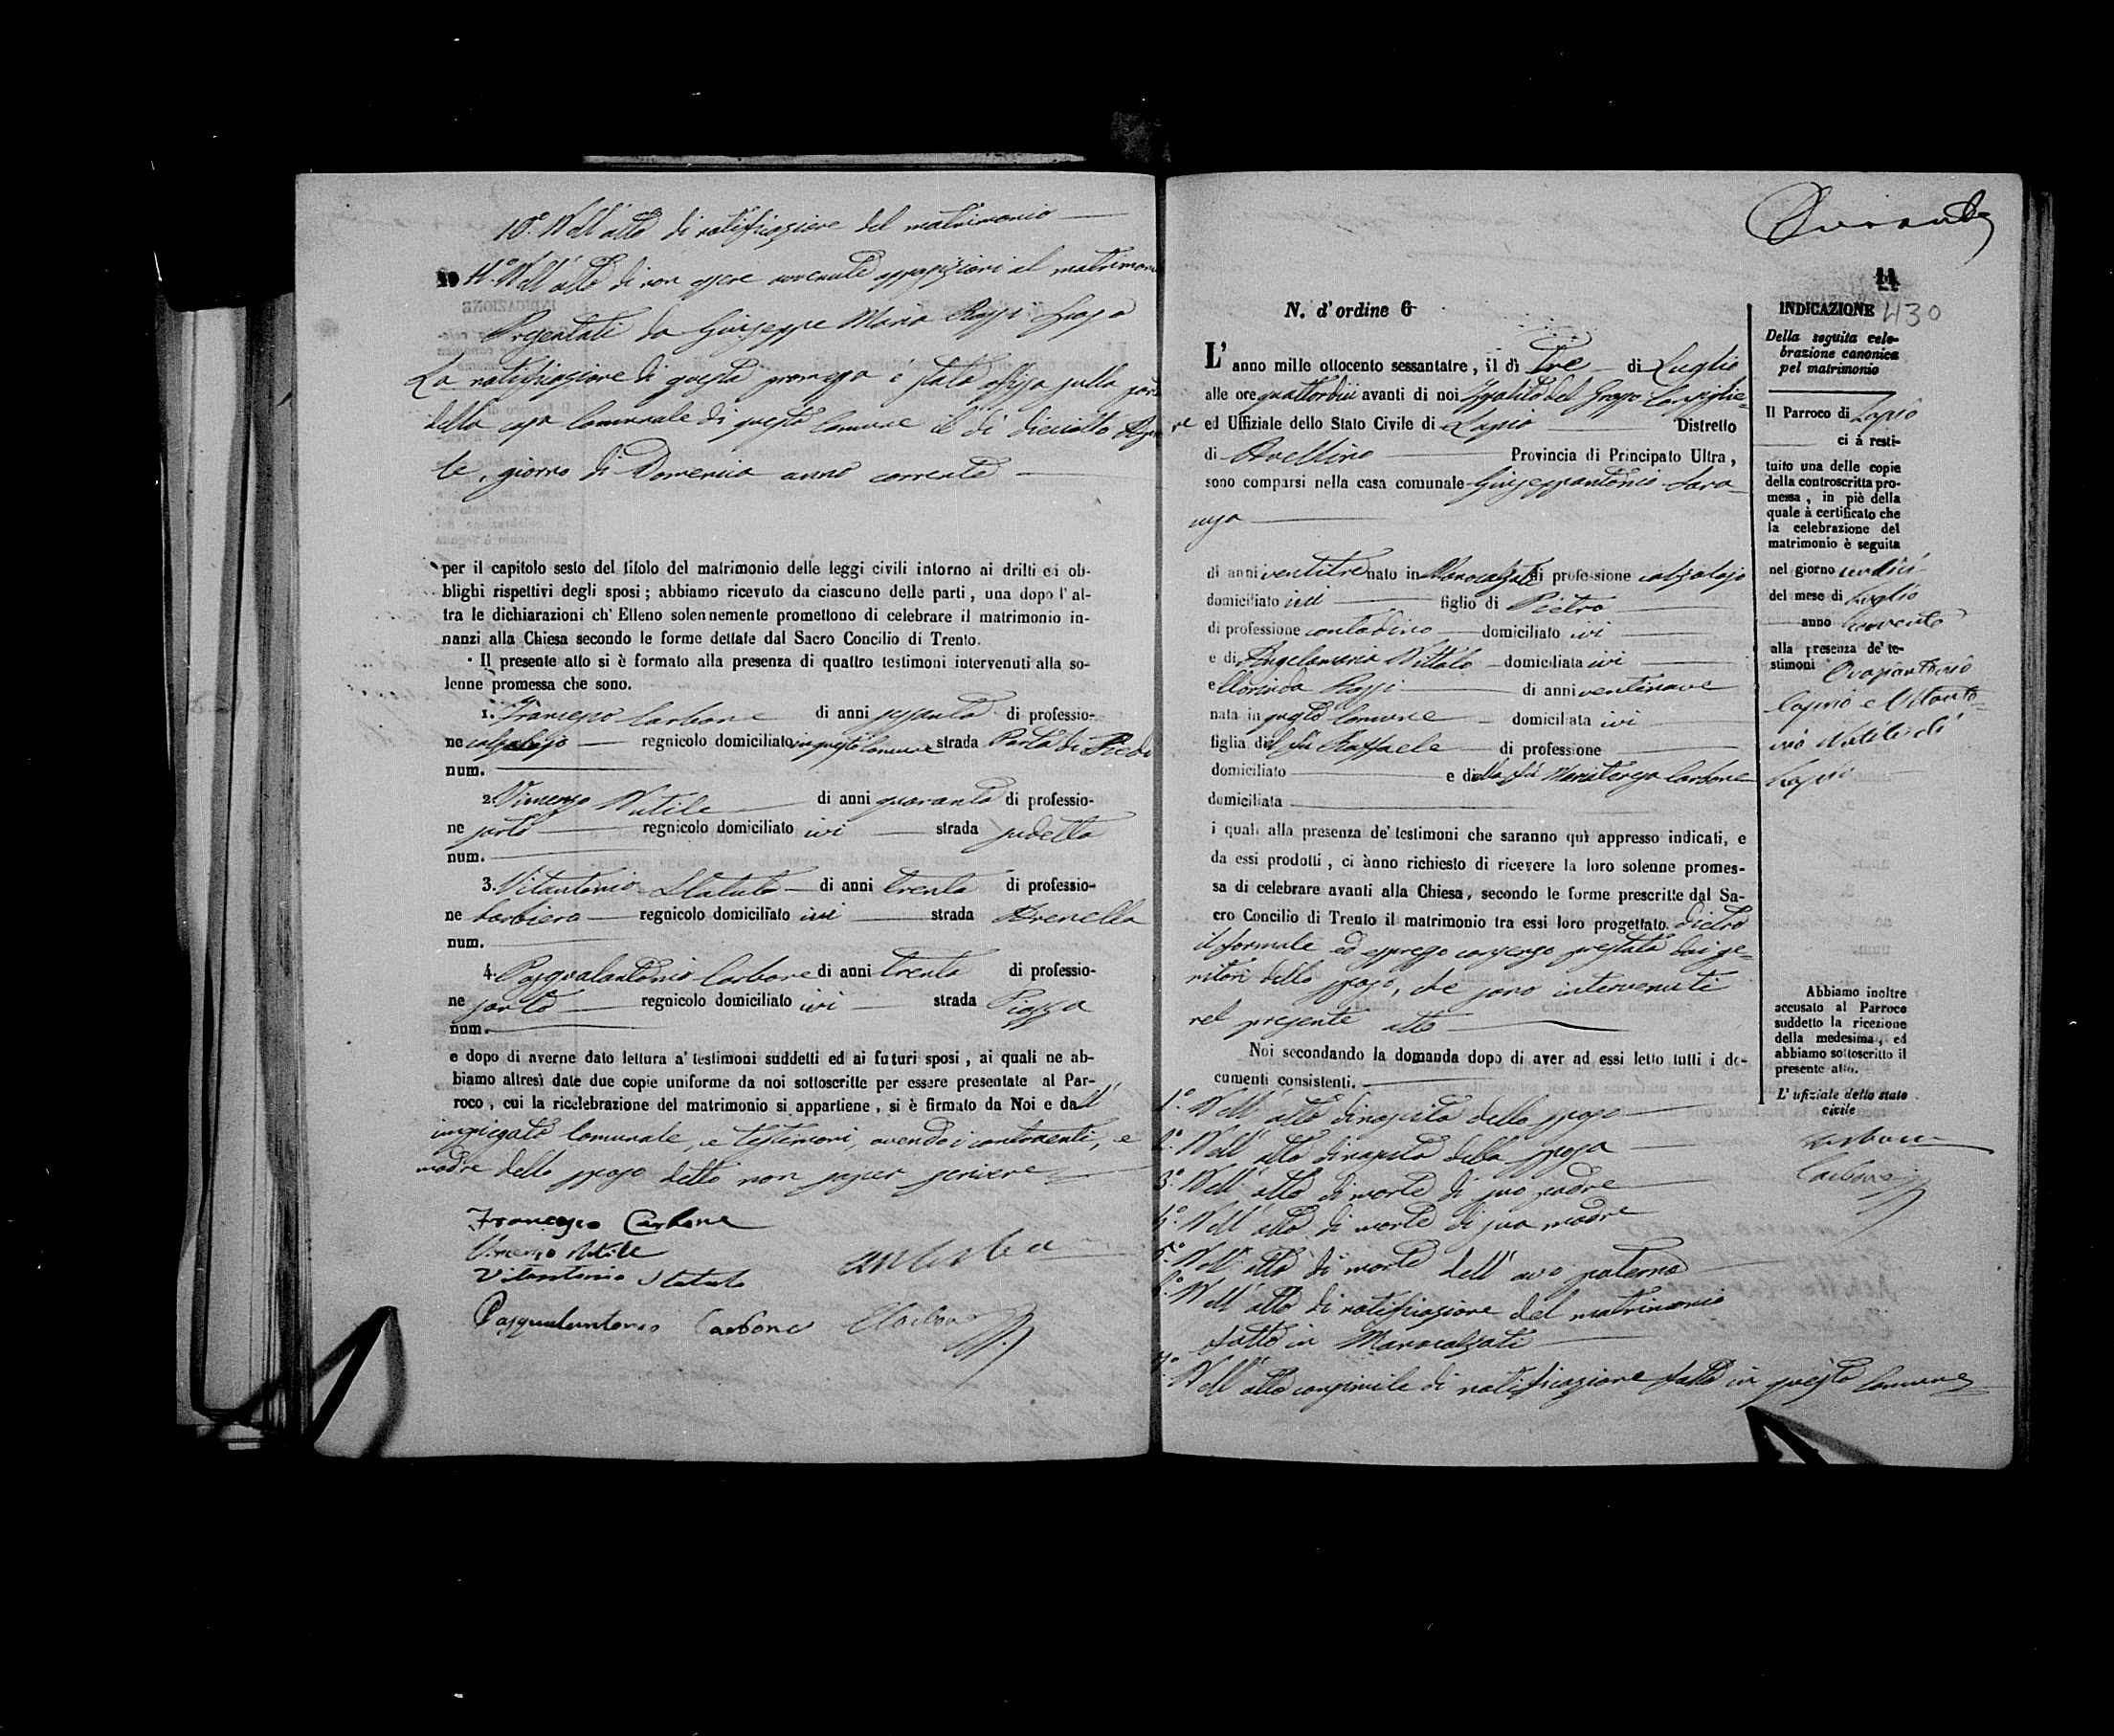 10.° Nell'atto di notificazione del matrimonio
10 11.° Nell'atto di non essere avvenute opposizioni al matrimonio
Presentati da Giuseppe Maria Rossi sposo
La notificazione di questa promessa è stata affissa sulla porta
della casa Comunale di questo Comune il dì dieciotto
le, giorno di Domenica anno corrente
per il capitolo sesto del titolo del matrimonio delle leggi civili intorno ai dritti ed ob-
blighi rispettivi degli sposi; abbiamo ricevuto da ciascuno delle parti, una dopo l'al-
tra le dichiarazioni ch'Elleno solennemente promettono di celebrare il matrimonio in-
nanzi alla Chiesa secondo le forme dettate dal Sacro Concilio di Trento.
Il presente atto si è formato alla presenza di quattro testimoni intervenuti alla so-
lenne promessa che sono.
1. Francesco Carbone di anni sessanta di professio-
ne calzolajo regnicolo domiciliato in questo Comune strada Porta di Piedi
num.
2. Vincenzo Nutile di anni quaranta di professio-
ne sarto regnicolo domiciliato ivi strada
num.
3. Vitantonio Statuto di anni trenta di professio-
ne barbiere regnicolo domiciliato ivi strada
num.
4. Pasqualantonio Carbone di anni trenta di professio-
ne sarto regnicolo domiciliato ivi strada Piazza
num.
e dopo di averne dato lettura a' testimoni suddetti ed ai futuri sposi, ai quali ne ab-
biamo altresì date due copie uniforme da noi sottoscritte per essere presentate al Par-
roco, cui la ricelebrazione del matrimonio si appartiene, si è firmato da Noi e dall'
impiegato Comunale, e testimoni, avendo i contraenti, e
madre dello sposo detto non saper scrivere
Francesco Carbone
Vincenzo Nutile
Vitantonio Statuto
Pasqualantonio Carbone
11
430
N. d'ordine 6
L'anno mille ottocento sessantatre, il dì Tre di Luglio
alle ore quattordici avanti di noi Ippolito del Grosso Consiglie-
re ed Uffiziale dello Stato Civile di Lapio Distretto
di Avellino Provincia di Principato Ultra,
sono comparsi nella casa comunale Giuseppantonio
di anni ventitre nato in Manocalzati di professione calzolajo
domiciliato ivi figlio di Pietro
di professione contadino domiciliato ivi
e di Angelamaria domiciliata ivi
e Clorinda Rossi di anni ventinove
nata in questo Comune domiciliata ivi
figlia del fu Raffaele di professione
domiciliato e della fu Mariateresa Carbone
domiciliata
i quali alla presenza de' testimoni che saranno quì appresso indicati, e
da essi prodotti, ci ànno richiesto di ricevere la loro solenne promes-
sa di celebrare avanti alla Chiesa, secondo le forme prescritte dal Sa-
cro Concilio di Trento il matrimonio tra essi loro progettato. Dietro
il formale ed espresso consenso prestato dai ge-
nitori dello sposo, che sono intervenuti
nel presente atto
Noi secondando la domanda dopo di aver ad essi letto tutti i do-
cumenti consistenti.
1.° Nell'atto di nascita dello sposo
2.° Nell'atto di nascita della sposa
3.° Nell'atto di morte di suo padre
4.° Nell'atto di morte di sua madre
5.° Nell'atto di morte dell'avo paterno
6.° Nell'atto di notificazione del matrimonio
fatto in Manocalzati
7.° Nell'atto consimile di notificazione fatto in questo Comune
INDICAZIONE
Della seguita cele-
brazione canonica
pel matrimonio
Il Parroco di Lapio
ci à resti-
tuito una delle copie
della controscritta pro-
messa, in piè della
quale à certificato che
la celebrazione del
matrimonio è seguita
nel giorno undici
del mese di Luglio
anno corrente
alla presenza de' te-
stimoni
Lapio
Abbiamo inoltre
accusato al Parroco
suddetto la ricezione
della medesima, ed
abbiamo sottoscritto il
presente atto.
L'ufiziale dello stato
civile
Carbone